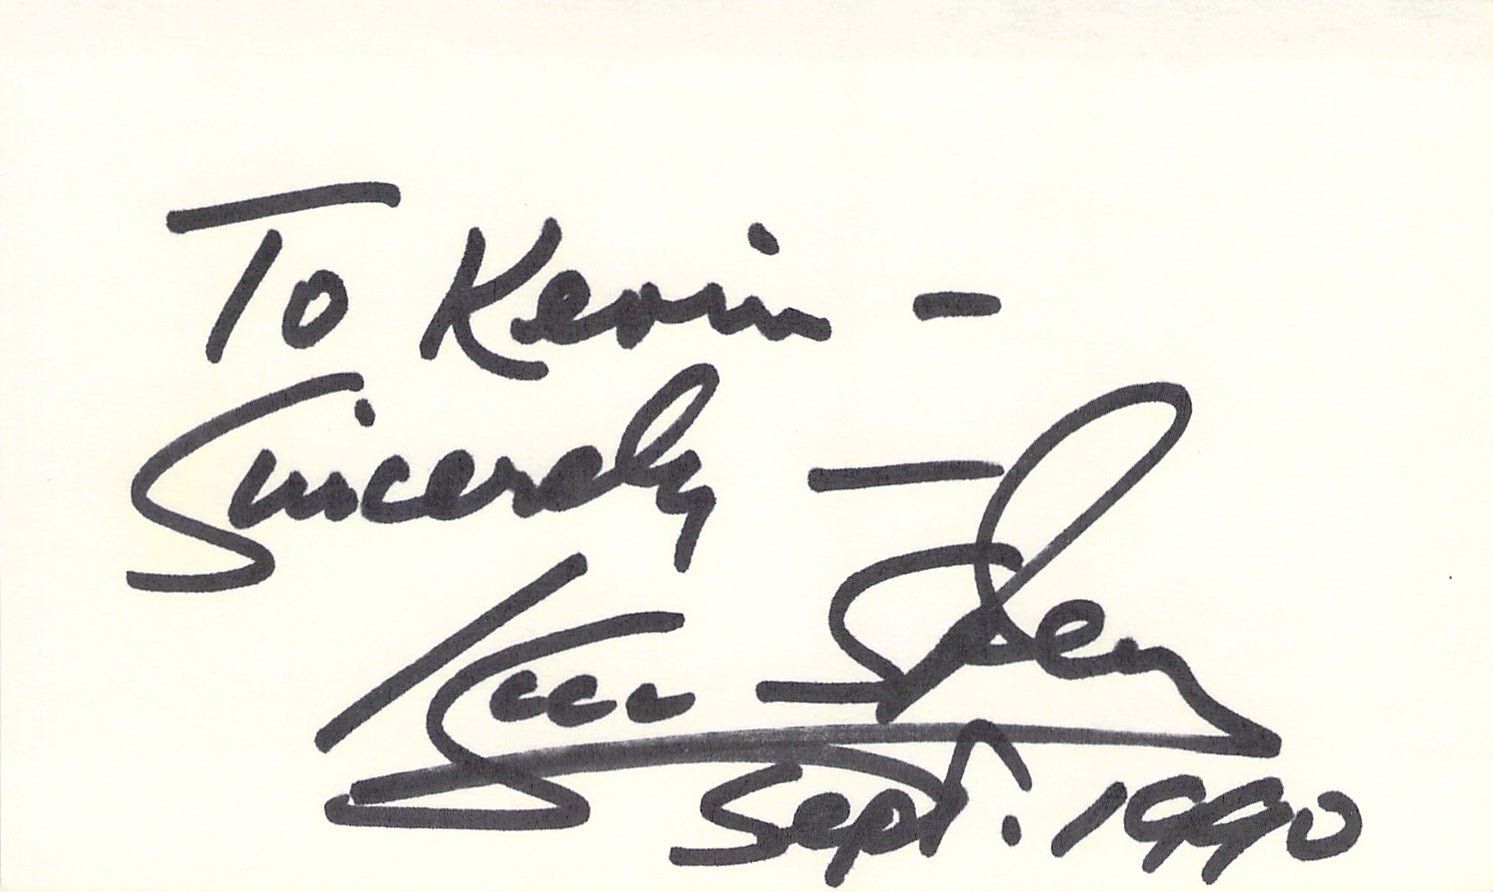 To Kevin -
Sincerely -
Sept. 1990